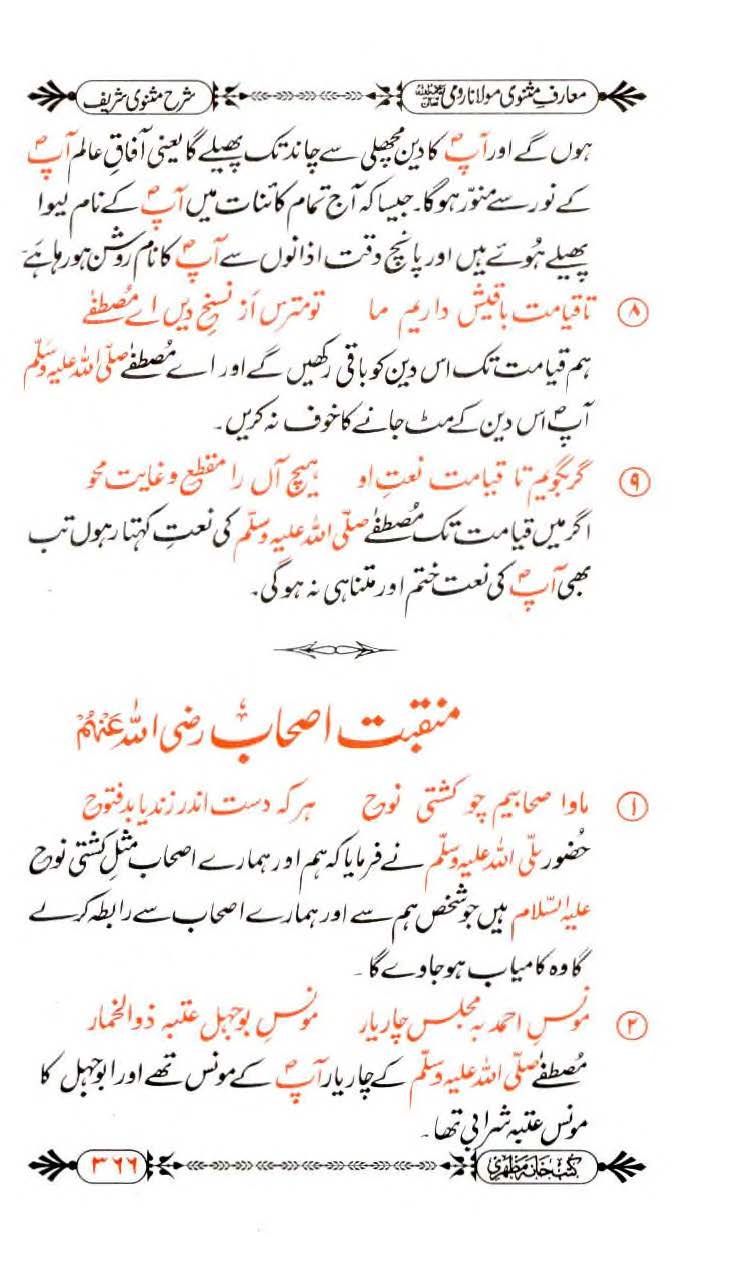 معارفِ مثنوی مولانا رومی
شرح مثنوی شریف
ہوں گے اور آپ ؐ کا دین مچھلی سے چاند تک پھیلے گا یعنی آفاقِ عالم آپ ؐ
کے نور سے منوّر ہوگا۔ جیسا کہ آج تمام کائنات میں آپ ؐ کے نام لیوا
پھیلے ہُوئے ہیں اور پانچ وقت اذانوں سے آپ ؐ کا نام روشن ہو رہا ہَے
۸ تا قیامت باقیش داریم ما تو مترس اَز نسخِ دیں اے مُصطفٰے
ہم قیامت تک اس دین کو باقی رکھیں گے اور اے مُصطفٰے صلّی اللہ علیہ وسَلّم
آپ ؐ اس دین کے مٹ جانے کا خوف نہ کریں۔
۹ گر بگویم تا قیامت نعتِ او ہیچ آں را مقطع و غایت مجو
اگر میں قیامت تک مُصطفٰے صلّی اللہ علیہ وسلّم کی نعتِ کہتا رہوں تب
بھی آپ ؐ کی نعت ختم اور متناہی نہ ہوگی۔
منقبت اصحابؓ رضی اللہ عَنہُمْ
۱ ما و اصحابیم چو کشتی نوح ہر کہ دست اندر زند یابد فتوح
حُضور صلّی اللہ علیہ وسلّم نے فرمایا کہ ہم اور ہمارے اصحاب مثلِ کشتی نوح
علیہ السّلام ہیں جو شخص ہم سے اور ہمارے اصحاب سے رابطہ کرلے
گا وہ کامیاب ہو جاوے گا۔
۲ مونسِ احمد بہ مجلس چار یار مونسِ بوجہل عتبہ ذوالخمار
مُصطفٰے صلّی اللہ علیہ وسلّم کے چار یار آپ ؐ کے مونس تھے اور ابوجہل کا
مونس عتبہ شرابی تھا۔
کتب خانہ مظہری
۳۶۶